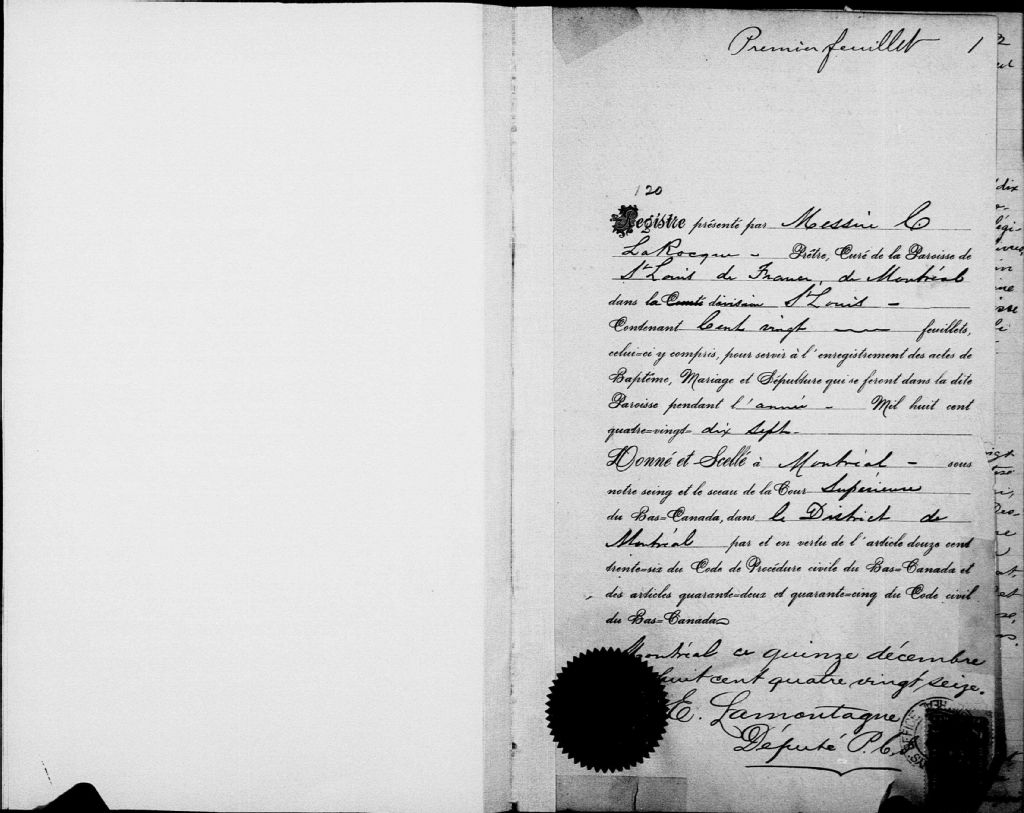 Premier feuillet 1
120
Registre présenté par Messire C
LaRocque - Prêtre, Curé de la Paroisse de
St Louis de France, de Montréal
dans la Comté division St Louis -
Contenant Cent vingt feuillets,
celui-ci y compris, pour servir à l'enregistrement des actes de
Baptême, Mariage et Sépulture qui se feront dans la dite
Paroisse pendant l'année - Mil huit cent
quatre-vingt dix sept -
Donné et Scellé à Montréal - sous
notre seing et le sceau de la Cour Supérieure
du Bas-Canada, dans le District de
Montréal par et en vertu de l'article douze cent
trente-six du Code de Procédure civile du Bas-Canada et
des articles quarante-deux et quarante-cinq du Code civil
du Bas-Canada
Montréal ce quinze décembre
huit cent quatre vingt seize.
E. Lamontagne
Député P. C.